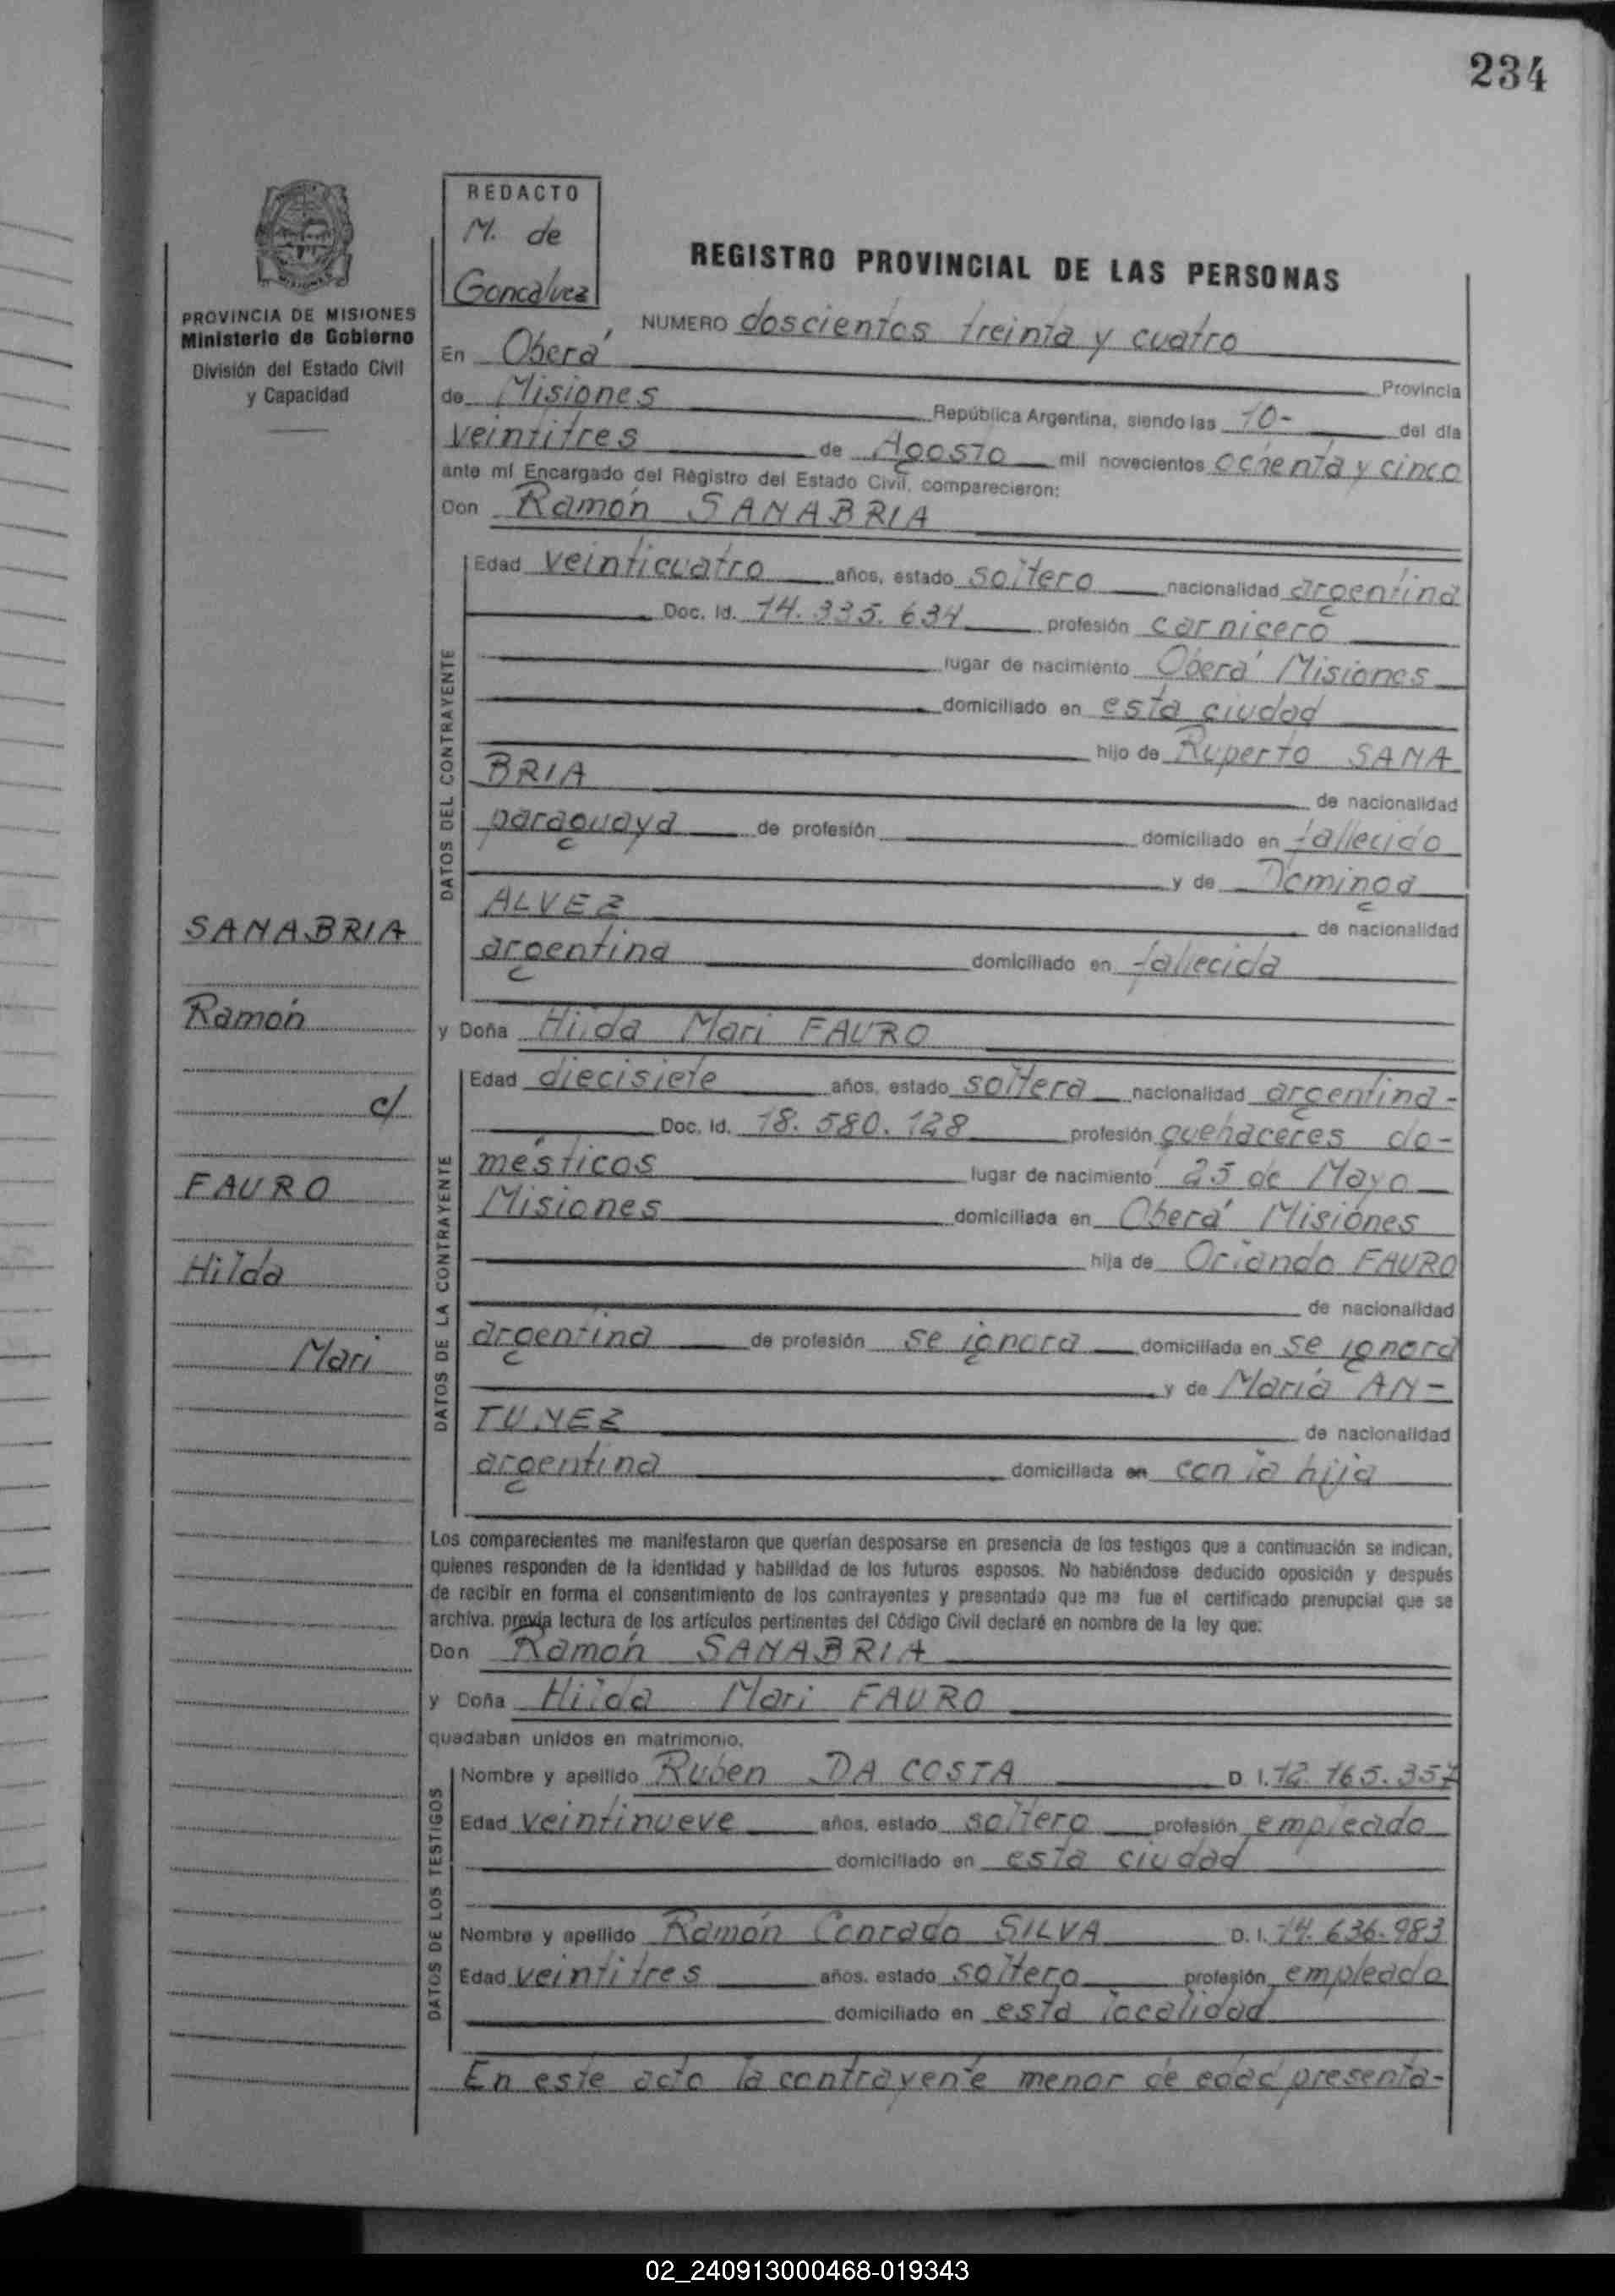 234
REDACTO
M. de
Goncalvez
PROVINCIA DE MISIONES
Ministerio de Gobierno
División del Estado Civil
y Capacidad
REGISTRO PROVINCIAL DE LAS PERSONAS
NUMERO doscientos treinta y cuatro
En Oberá Provincia
de Misiones República Argentina, siendo las 10- del día
veintitres de Agosto mil novecientos ochenta y cinco
ante mí Encargado del Registro del Estado Civil, comparecieron:
Don Ramón SANABRIA
DATOS DEL CONTRAYENTE
Edad veinticuatro años, estado soltero nacionalidad argentina
Doc. Id. 14.335.634 profesión carnicero
lugar de nacimiento Oberá Misiones
domiciliado en esta ciudad
hijo de Ruperto SANA
BRIA de nacionalidad
paraguaya de profesión domiciliado en fallecido
y de Dominga
ALVEZ de nacionalidad
argentina domiciliado en fallecida
SANABRIA
Ramón
c/
FAURO
Hilda
Mari
y Doña Hilda Mari FAURO
DATOS DE LA CONTRAYENTE
Edad diecisiete años, estado soltera nacionalidad argentina-
Doc. Id. 18.580.128 profesión quehaceres do-
mésticos lugar de nacimiento 25 de Mayo
Misiones domiciliada en Oberá Misiones
hija de Orlando FAURO
de nacionalidad
argentina de profesión se ignora domiciliada en se ignora
y de María AN-
TUNEZ de nacionalidad
argentina domiciliada en con la hija
Los comparecientes me manifestaron que querían desposarse en presencia de los testigos que a continuación se indican,
quienes responden de la identidad y habilidad de los futuros esposos. No habiéndose deducido oposición y después
de recibir en forma el consentimiento de los contrayentes y presentado que me fue el certificado prenupcial que se
archiva. previa lectura de los artículos pertinentes del Código Civil declaré en nombre de la ley que:
Don Ramón SANABRIA
y Doña Hilda Mari FAURO
quedaban unidos en matrimonio.
DATOS DE LOS TESTIGOS
Nombre y apellido Ruben DA COSTA D. I. 12.165.357
Edad veintinueve años, estado soltero profesión empleado
domiciliado en esta ciudad
Nombre y apellido Ramón Conrado SILVA D. I. 14.636.983
Edad veintitres años, estado soltero profesión empleado
domiciliado en esta localidad
En este acto la contrayente menor de edad presenta-
02_240913000468-019343